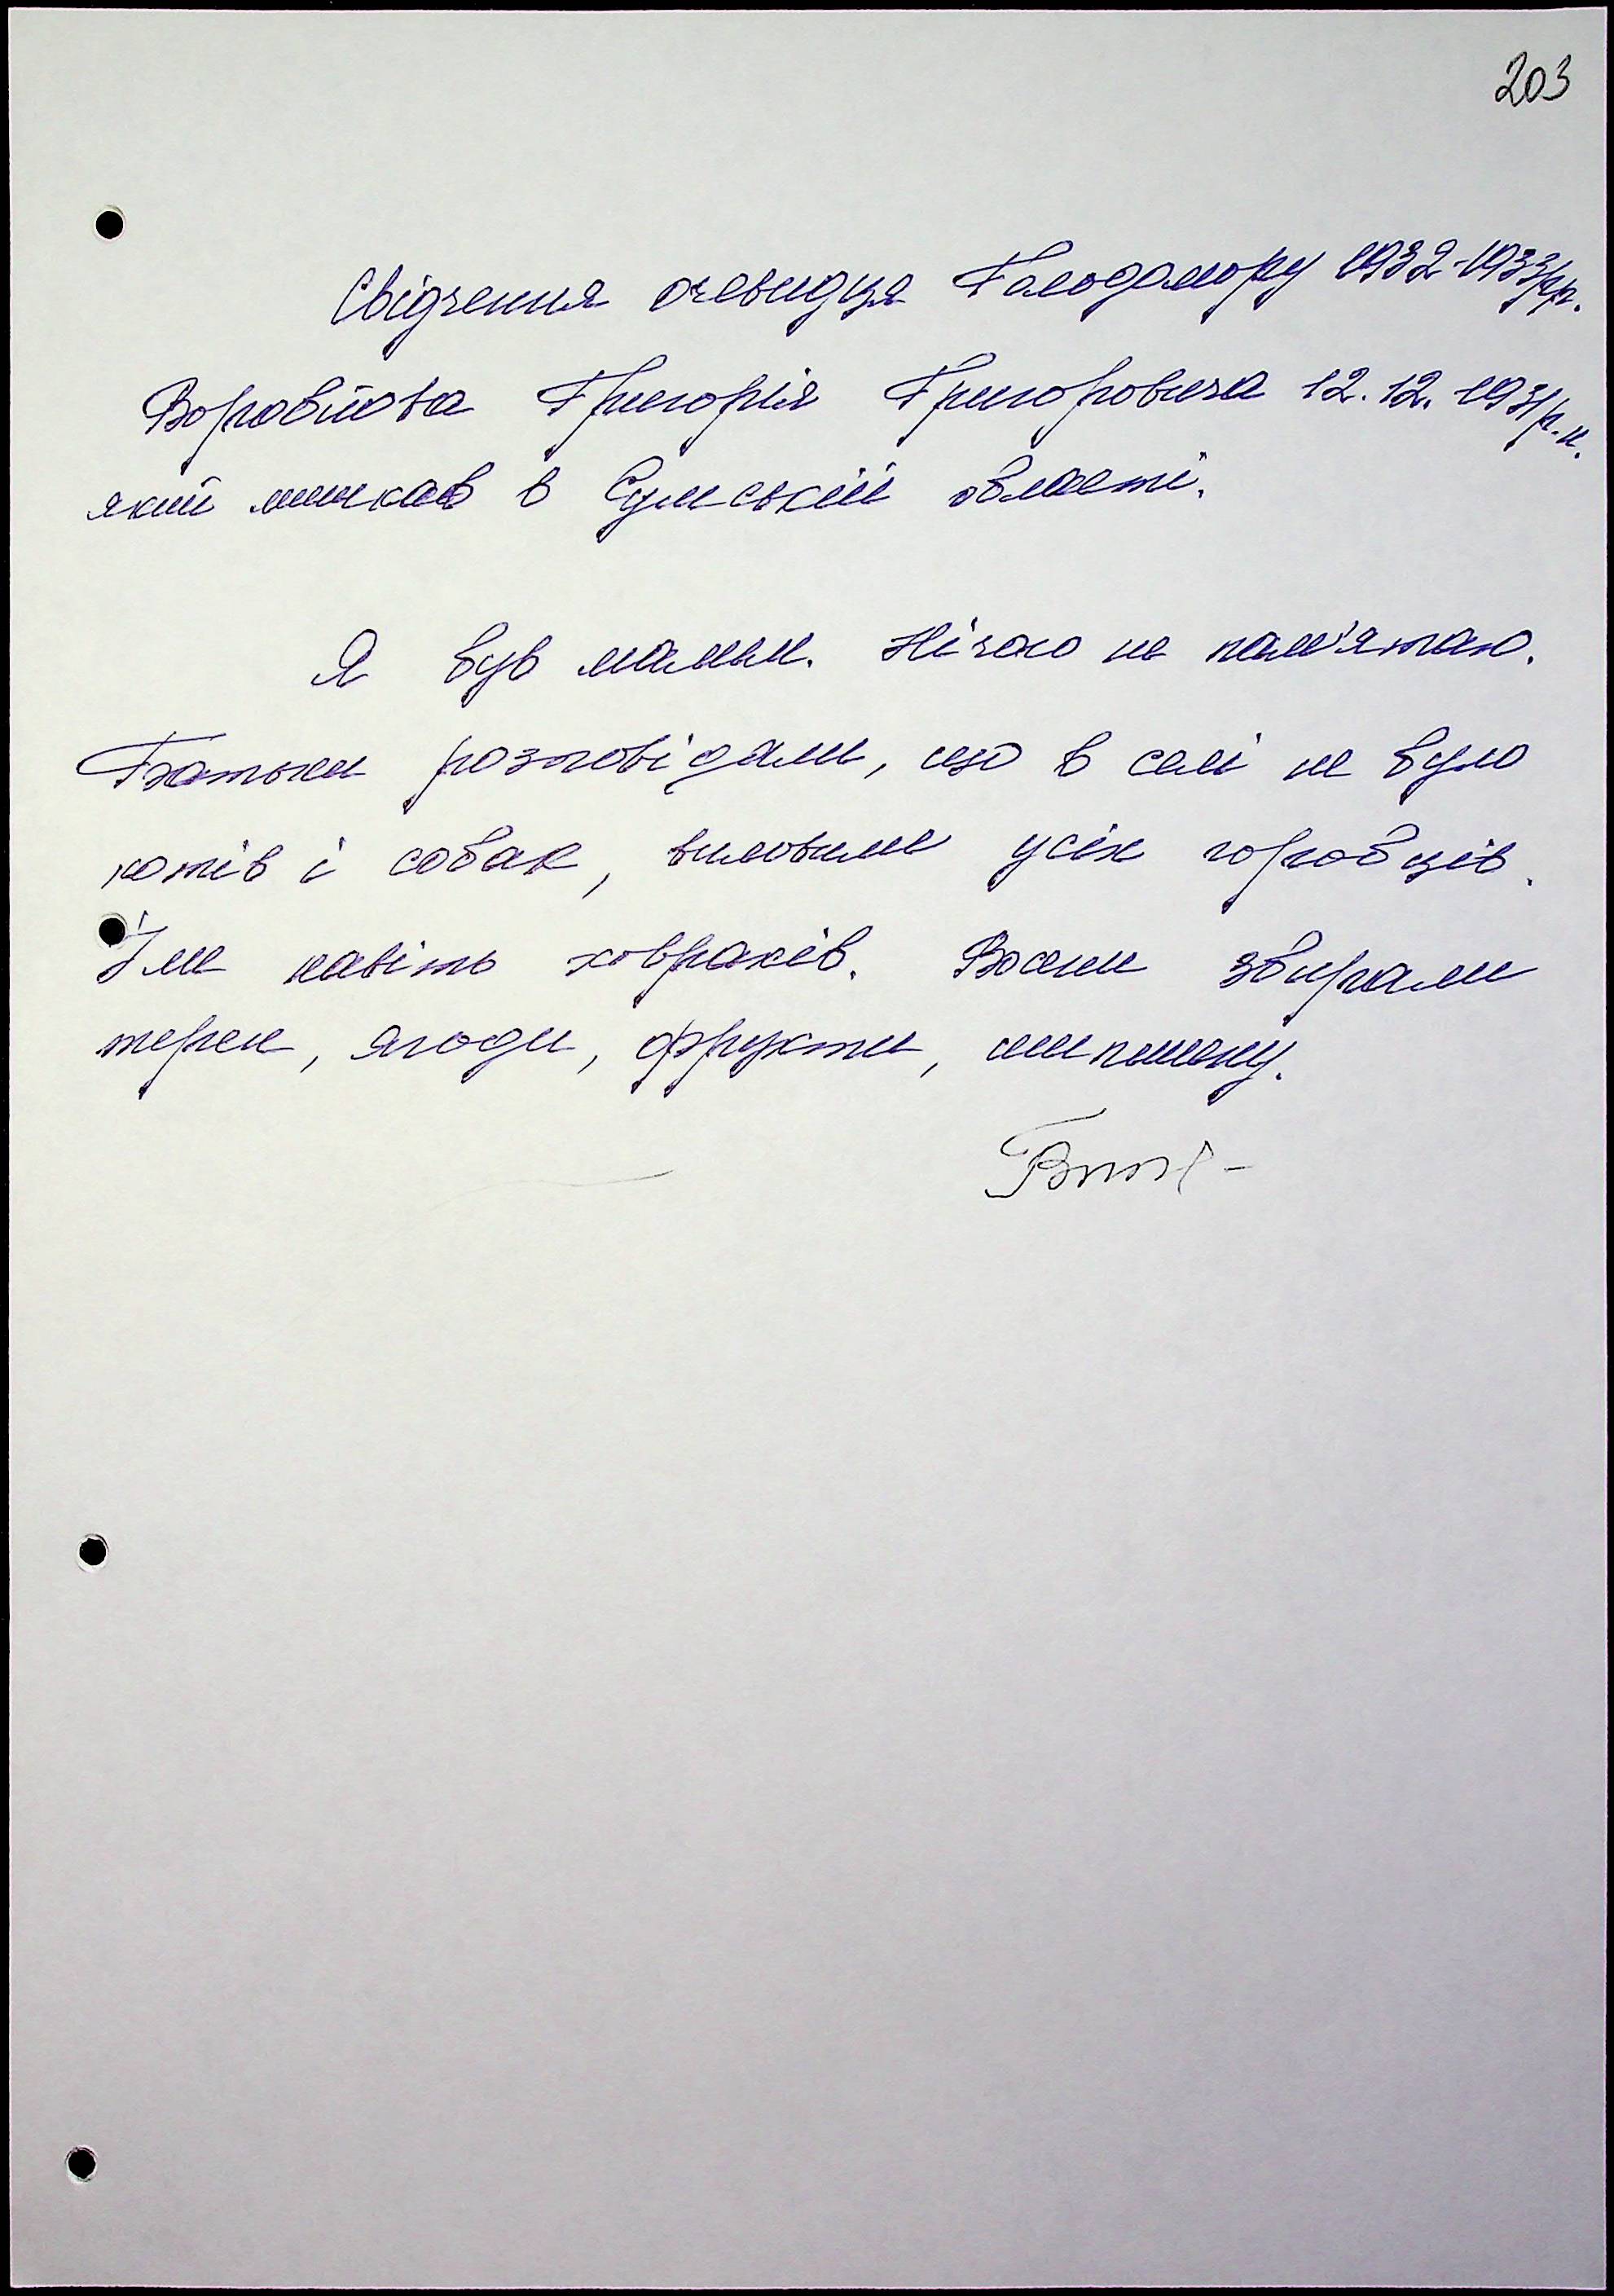 203
Свідчення очевидця Голодомору 1932-1933рр.
Воробйова Григорія Григоровича 12.12.1931р.н.
який мешкав в Сумській області.
Я був малим. Нічого не пам'ятаю.
Батьки розповідали, що в селі не було
котів і собак, виловили усіх горобців.
Їли навіть ховрахів. Восени збирали
терен, ягоди, фрукти, шипшину.